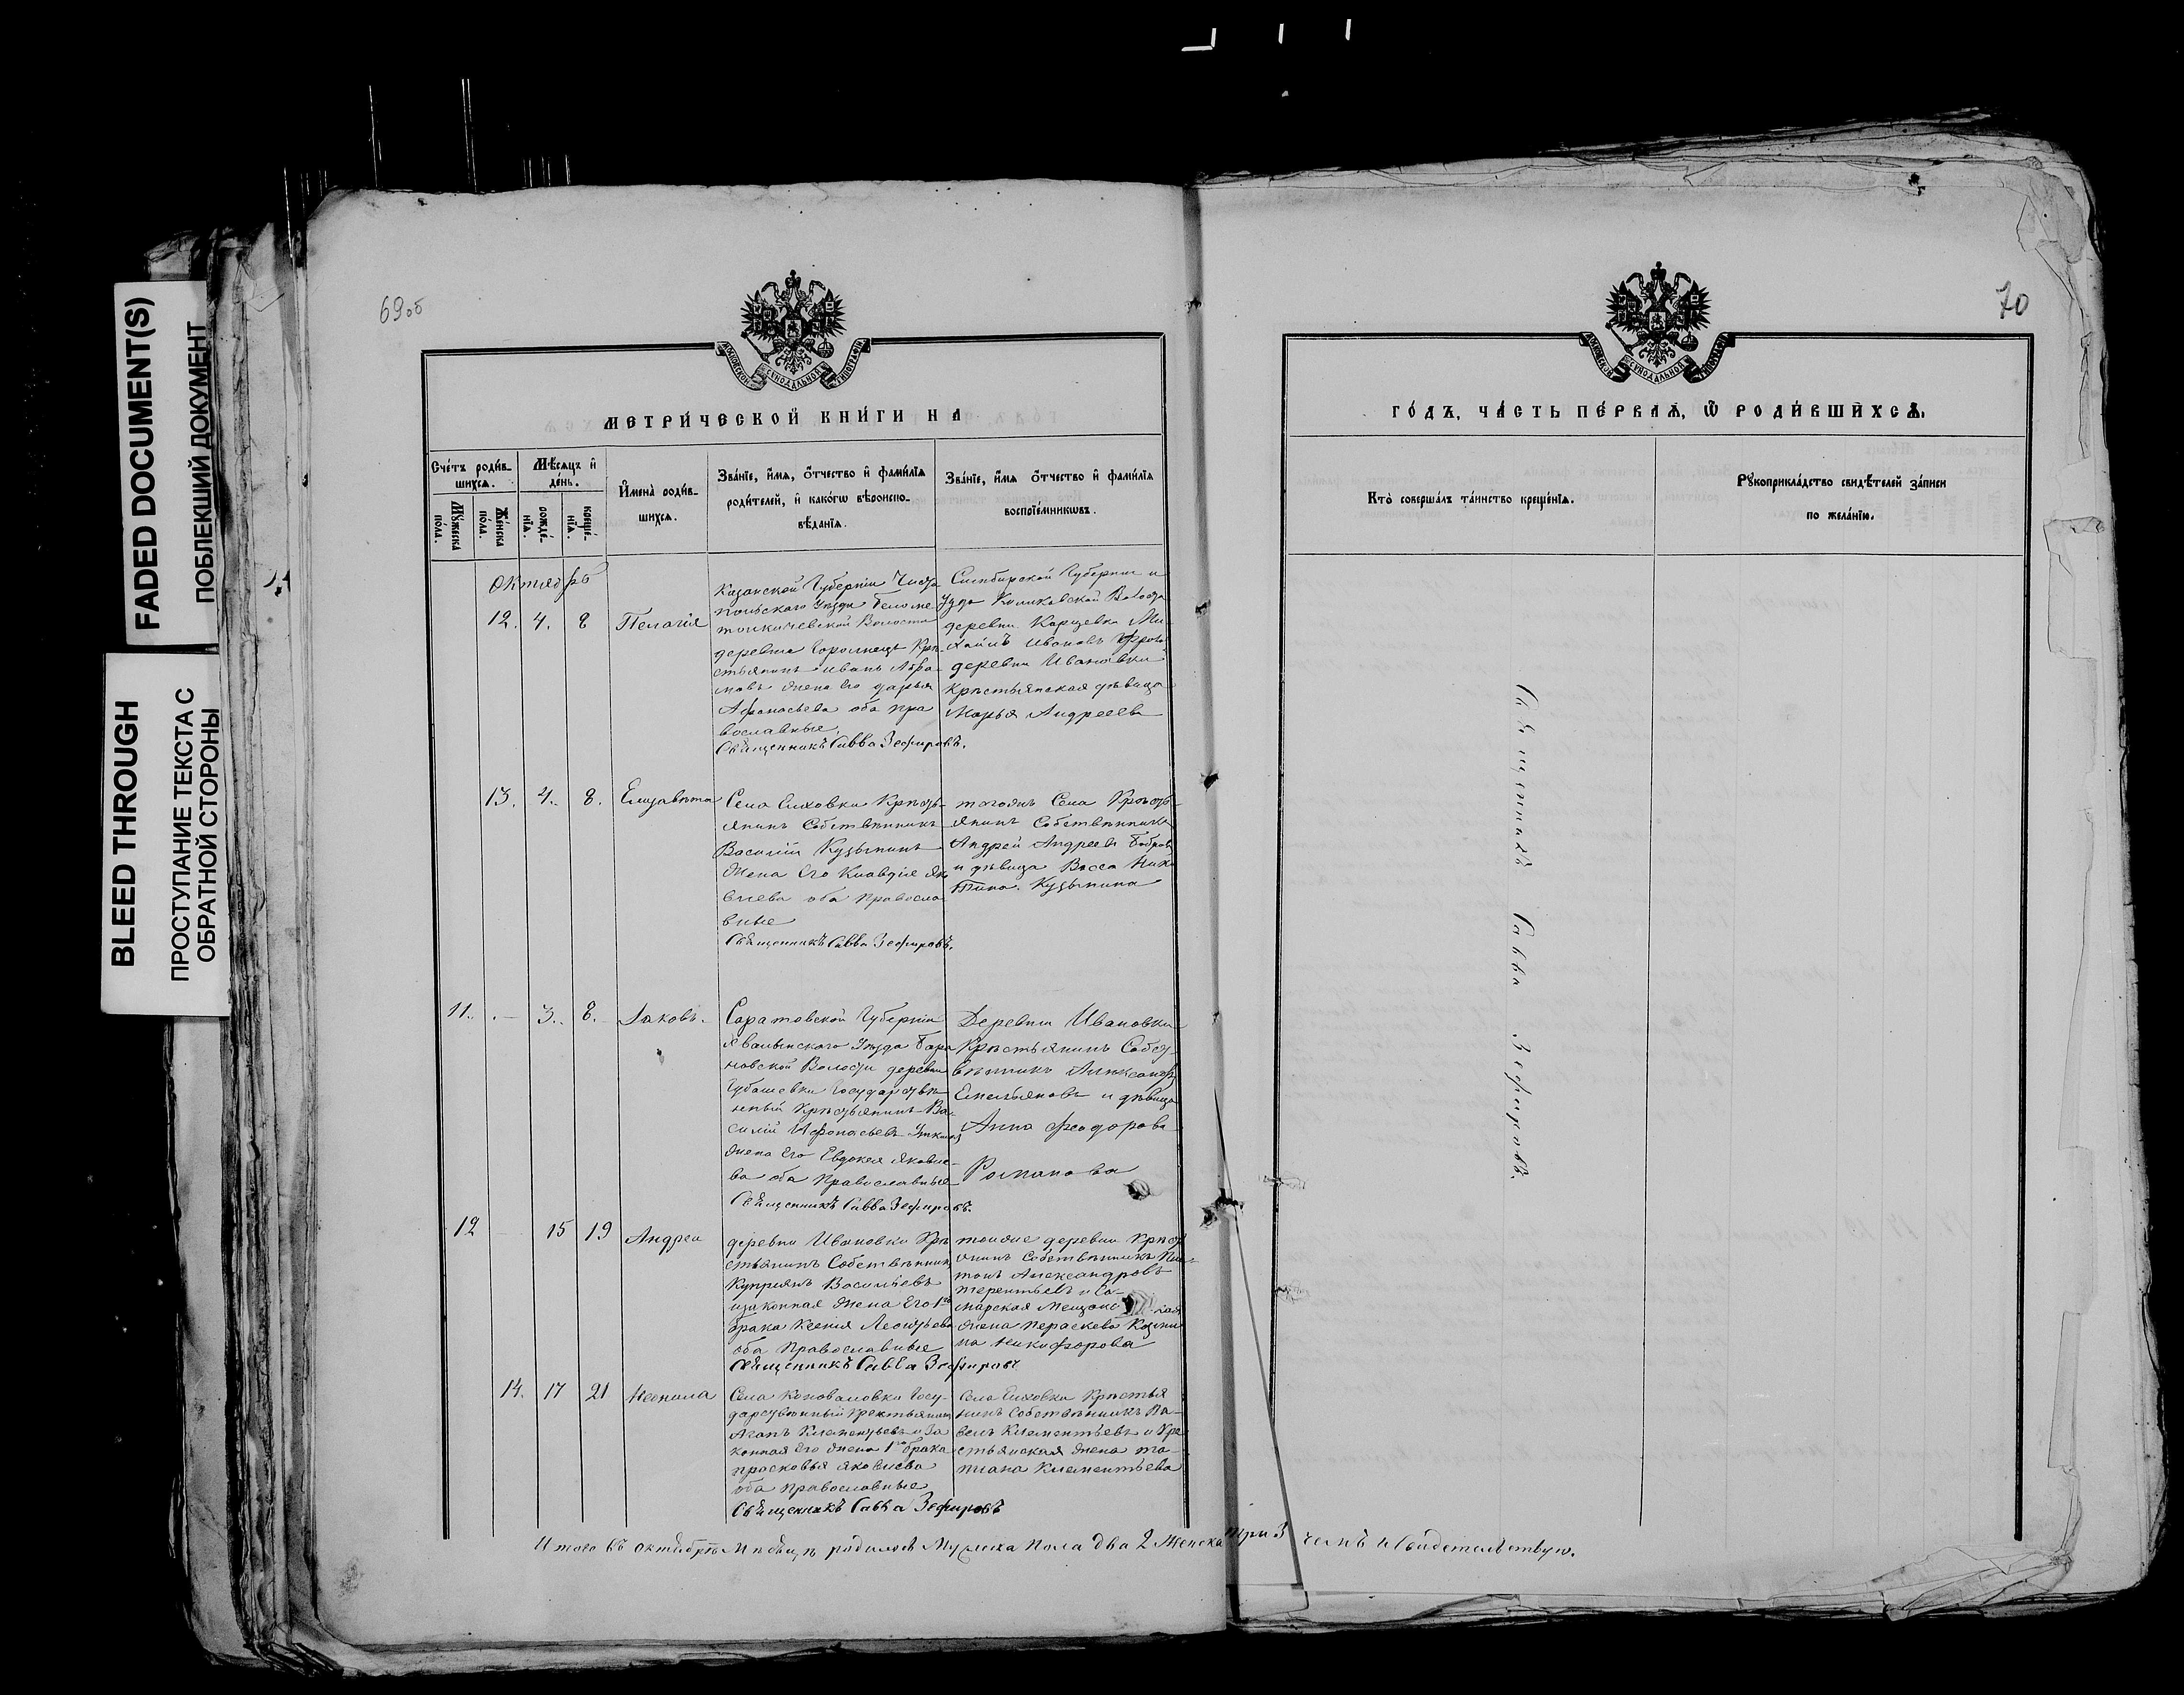 FADED DOCUMENT(S)
ПОБЛЕКШИЙ ДОКУМЕНТ
BLEED THROUGH
ПРОСТУПАНИЕ ТЕКСТА С
ОБРАТНОЙ СТОРОНЫ
69об
МОСКОВСКОЙ СѴНОДАЛЬНОЙ ТИПОГРАФІИ
МЕТРИ́ЧЕСКОЙ КНИ́ГИ НА
Сче́тъ роди́в-
шихсѧ.
Мѣ́сѧцъ и҆
де́нь.
И҆мена̀ роди́в-
шихсѧ.
Зва́нїе, и҆́мѧ, ѻ҆́тчество и҆ фами́лїѧ
роди́телей, и҆ како́гѡ вѣроиспо-
вѣ́данїѧ.
Зва́нїе, и҆́мѧ ѻ҆́тчество и҆ фами́лїѧ
воспрїе́мникѡвъ.
Мꙋ́жеска
по́ла.
Же́нска
по́ла.
рожде́-
нїѧ.
креще́-
нїѧ.
Октябрь
12. 4. 8 Пелагія
Казанской Губерніи Чисто
польскаго Уѣзда
Волости
деревни Крѣ-
стьянинъ Иванъ Абра-
мовъ жена его Дарья
Афонасьева оба пра
вославные.
Священникъ Савва Зефировъ.
Симбирской Губерніи и
Уѣзда Волости
деревни Ми-
хаилъ Ивановъ
деревни Ивановки
Крѣстьянская дѣвица
Марья Андреева
13. 4. 8. Елизавѣта
Села Елховки Крѣсть-
янинъ Собствѣнникъ
Василій Кузьминъ
жена его Клавдія Як
влева оба Правосла
вные
Священникъ Савва Зефировъ.
тогожъ Села Крѣсть-
янинъ Собствѣнникъ
Андрей Андреевъ Бобровъ
и дѣвица Васса Ники
тина Кузьмина
11. — 3. 8. Іаковъ.
Саратовской Губерніи
Хвалынскаго Уѣзда Бара
новской Волости деревни
Чубашевки Государствѣ-
нный Крѣстьянинъ Ва-
силій Афонасьевъ
жена его Евдокея Яковле-
ва оба Православные
Священникъ Савва Зефировъ.
Деревни Ивановки
Крѣстьянинъ Собст-
вѣнникъ Алѣксандръ
Емельяновъ и дѣвица
Анна Феодорова
Романова
12 15 19 Андреи
деревни Ивановки Крѣ
стьянинъ Собствѣнникъ
Куприянъ Васильевъ
изаконная жена его 1го
брака Ксенія Леонтьева
оба Православные
Священникъ Савва Зефировъ
тоижие деревни Крѣст
янинъ Собствѣнникъ Пла-
тонъ Александровъ
терентьевъ и Са-
марская Мещанс кая
жена Пераскева Козми
на Никифорова
14. 17 21 Неонила
Села Коноваловки Госу-
дарствѣнный Крестьянинъ
Агапъ Клементьевъ и За
конная его жена 1го брака
прасковья яковлева
оба православные
Священникъ Савва Зефировъ
Села Елховки Крѣстья
нинъ Собствѣнникъ Па-
велъ Клементьевъ и Кре
стьянская жена та-
тиана Клементьева
Итого въ октябрѣ Мѣсяцѣ родилось Мужеска пола два 2 Женска три 3 чемъ и Свидетельствую.
70
МОСКОВСКОЙ СѴНОДАЛЬНОЙ ТИПОГРАФІИ
ГО́ДЪ, ЧА́СТЬ ПЕ́РВАѦ, Ѡ҆ РОДИ́ВШИХСѦ.
Кто̀ соверша́лъ та́инство креще́нїѧ.
Рꙋкоприкла́дство свидѣ́телей за́писи
по жела́нїю.
Священникъ Савва Зефировъ.